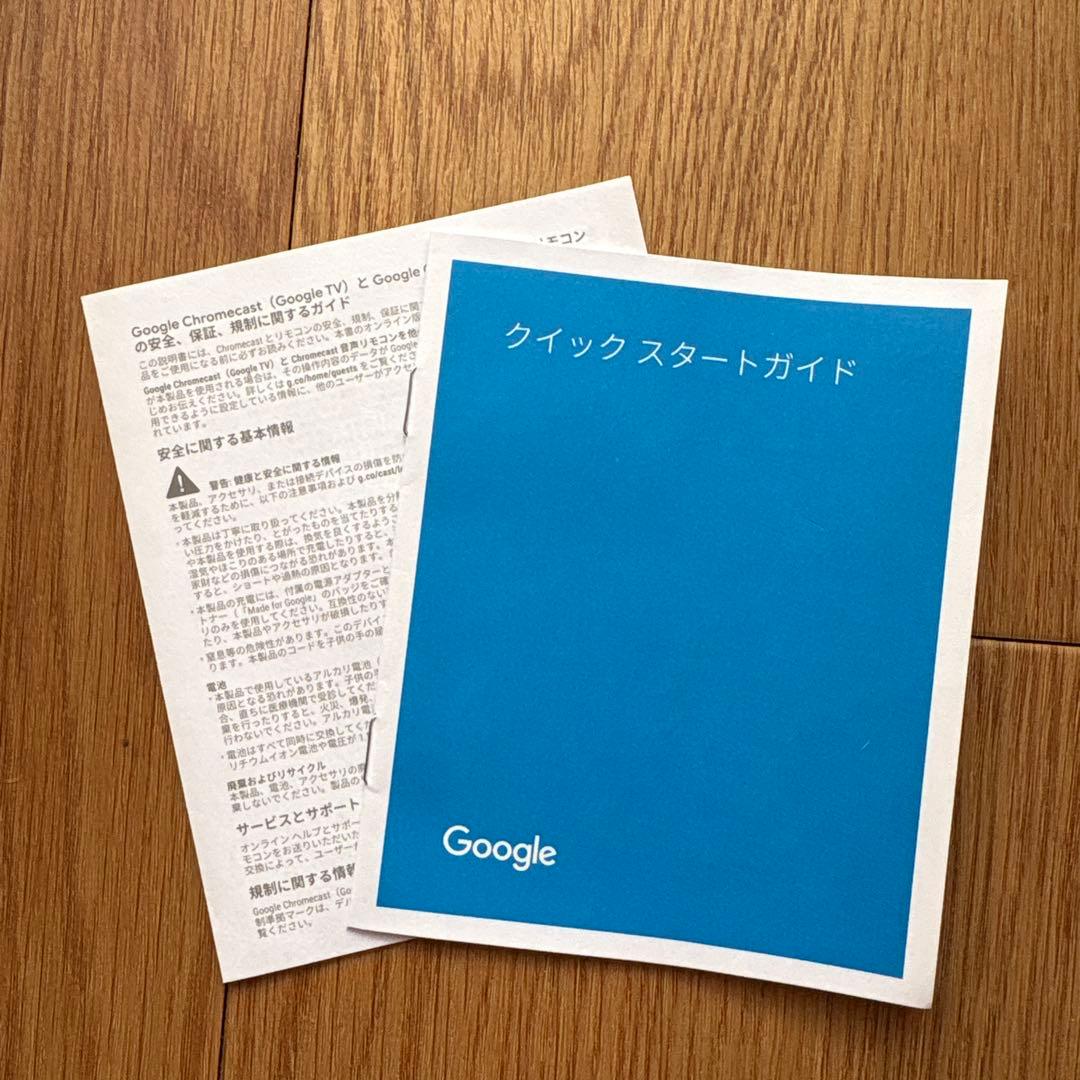 Google Chromecast（Google TV）と Google
モコン
の安全、保証、規制に関するガイド
この説明書には、Chromecast とリモコンの安全、規制、保証に関
品をご使用になる前に必ずお読みください。本書のオンライン版
Google Chromecast（Google TV）と Chromecast 音声リモコンを他
が本製品を使用される場合は、その操作内容のデータが Google
じめお伝えください。詳しくは g.co/home/guests をご覧くださ
用できるように設定している情報に、他のユーザーがアクセ
れています。
安全に関する基本情報
警告: 健康と安全に関する情報
本製品、アクセサリ、または接続デバイスの損傷を防
を軽減するために、以下の注意事項および g.co/cast/
ってください。
・本製品は丁寧に取り扱ってください。本製品を分
い圧力をかけたり、とがったものを当てたりする
や本製品を使用する際は、換気を良くするよう
湿気やほこりのある場所で充電したりすると、
家財などの損傷につながる恐れがあります。
すると、ショートや過熱の原因となります。
・本製品の充電には、付属の電源アダプターと
トナー（「Made for Google」のバッジをご確
リのみを使用してください。互換性のない
たり、本製品やアクセサリが破損したりす
・窒息等の危険性があります。このデバイ
ります。本製品のコードを子供の手の
電池
・本製品で使用しているアルカリ電池（
原因となる恐れがあります。子供の
合、直ちに医療機関で受診してくだ
棄を行ったりすると、火災、爆発、
行わないでください。アルカリ電
・電池はすべて同時に交換してくだ
リチウムイオン電池や電圧が 1.
廃棄およびリサイクル
本製品、電池、アクセサリの廃
棄しないでください。製品の
サービスとサポート
オンライン ヘルプとサポー
モコンをお送りいただいた
交換によって、ユーザー
規制に関する情報
Google Chromecast（Go
制準拠マークは、デ
覧ください。
クイック スタートガイド
Google